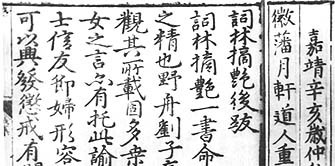 嘉靖辛亥歲仲
徽藩月軒道人重
詞林摘艷後跋
詞林摘艷一書命
之精也野舟劉子
觀其所載固多桑
女之言亦有托此諭
士信友邪婦形容
可以興發懲戒有